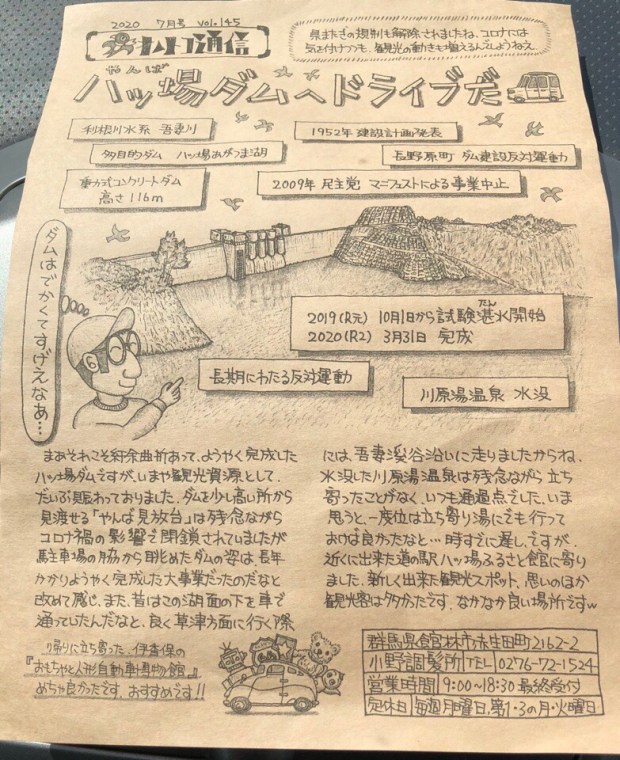 2020 7月号 vol.145
通信
県またぎの規制も解除されましたね、コロナには
気を付けつつも、観光の動きも増えるんでしょうねえ
やんば
八ッ場ダムへドライブだ
利根川水系 吾妻川
1952年 建設計画発表
多目的ダム 八ッ場あがつま湖
長野原町 ダム建設反対運動
重力式コンクリートダム
高さ116m
2009年 民主党 マニフェストによる事業中止
ダムはでかくてすげえなあ…
2019(R元) 10月1日から試験湛水開始
たん
2020(R2) 3月31日 完成
長期にわたる反対運動
川原湯温泉 水没
まあそれこそ紆余曲折あって、ようやく完成した
八ッ場ダムですが、いまや観光資源として、
だいぶ賑わっておりました。ダムを少し高い所から
見渡せる「やんば見放台」は残念ながら
コロナ禍の影響で閉鎖されていましたが
駐車場の脇から眺めたダムの姿は、長年
かかりようやく完成した大事業だったのだなと
改めて感じ、また、昔はこの湖面の下を車で
通っていたんだなと、良く草津方面に行く際
には、吾妻渓谷沿いに走りましたからね、
水没した川原湯温泉は残念ながら立ち
寄ったことがなく、いつも通過点でした、いま
思うと、一度位は立ち寄り湯にでも行って
おけば良かったなと…時すでに遅しですが、
近くに出来た道の駅 八ッ場ふるさと館に寄り
ました、新しく出来た観光スポット、思いのほか
観光客は多かったです、なかなか良い場所ですw
帰りに立ち寄った、伊香保の
『おもちゃと人形自動車博物館』
めちゃ良かったです、おすすめです!!
群馬県館林市赤生田町2162-2
小野調髪所 TEL 0276-72-1524
営業時間 9:00~18:30 最終受付
定休日 毎週月曜日、第1・3の月・火曜日